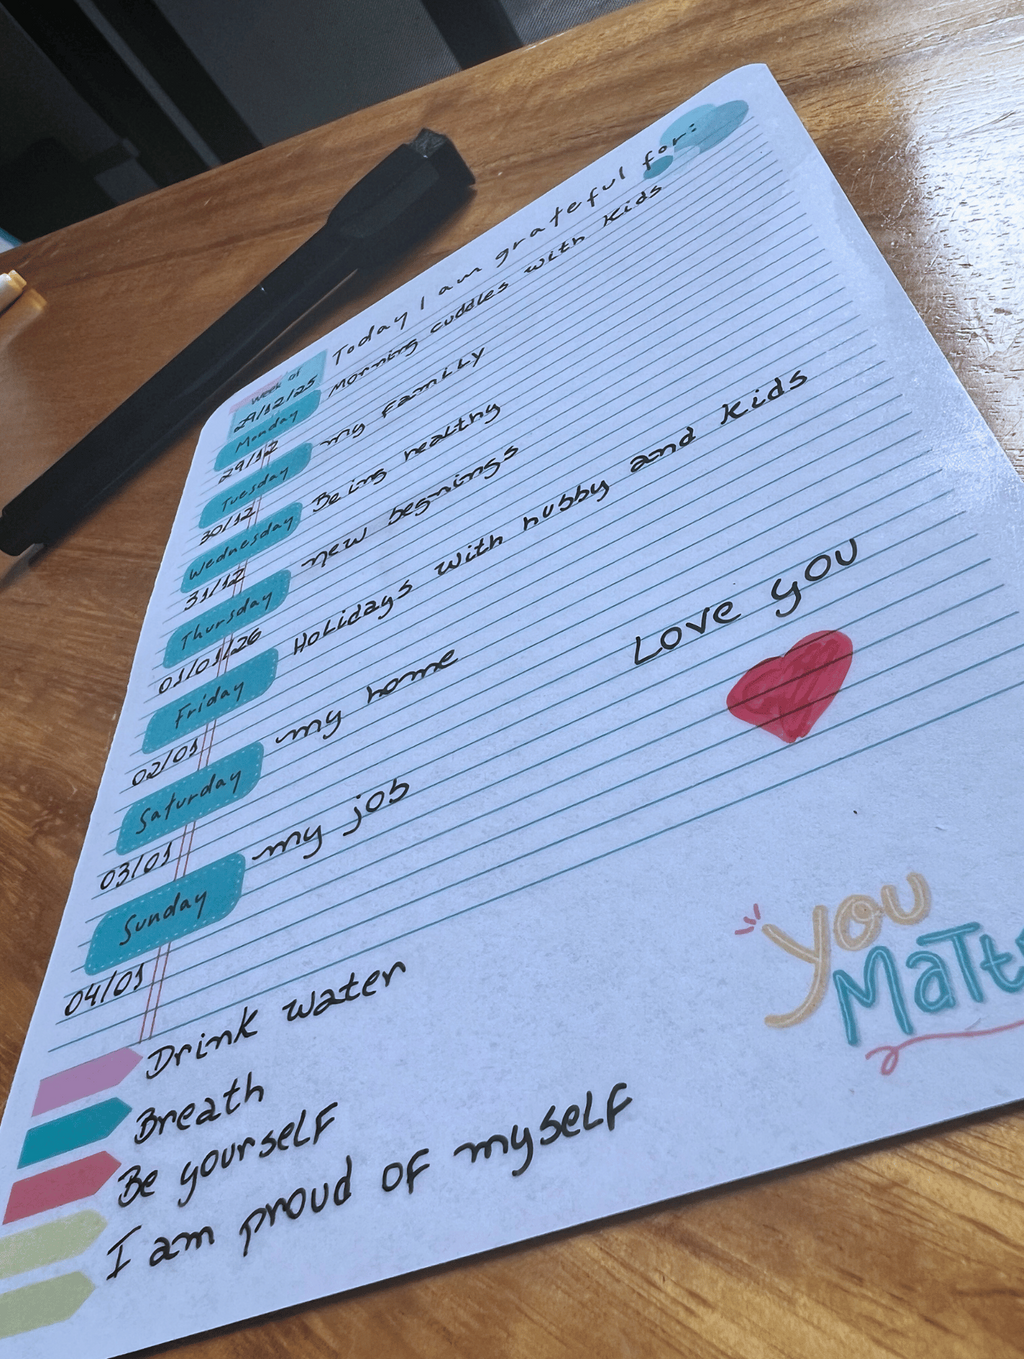 Today I am grateful for:
Week of
29/12/25
Morning cuddles with kids
Monday
29/12
my family
Tuesday
30/12
Being healthy
Wednesday
31/12
new begnings
Thursday
01/01/26
Holidays with hubby and kids
Friday
02/01
my home
Saturday
03/01
my job
Sunday
04/01
Love you
You
Matt
Drink water
Breath
Be yourself
I am proud of myself